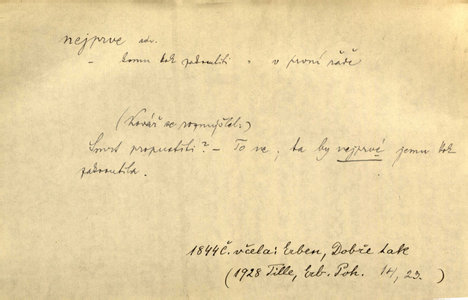 nejprve adv.
- komu krk zakroutiti = v první řadě
(Kovář se rozmýšlel:)
Smrt propustiti? - To ne; ta by nejprvé jemu krk
zakroutila.
1844 Č. včela: Erben, Dobře tak
(1928 Tille, Erb. Poh. 14, 23.)